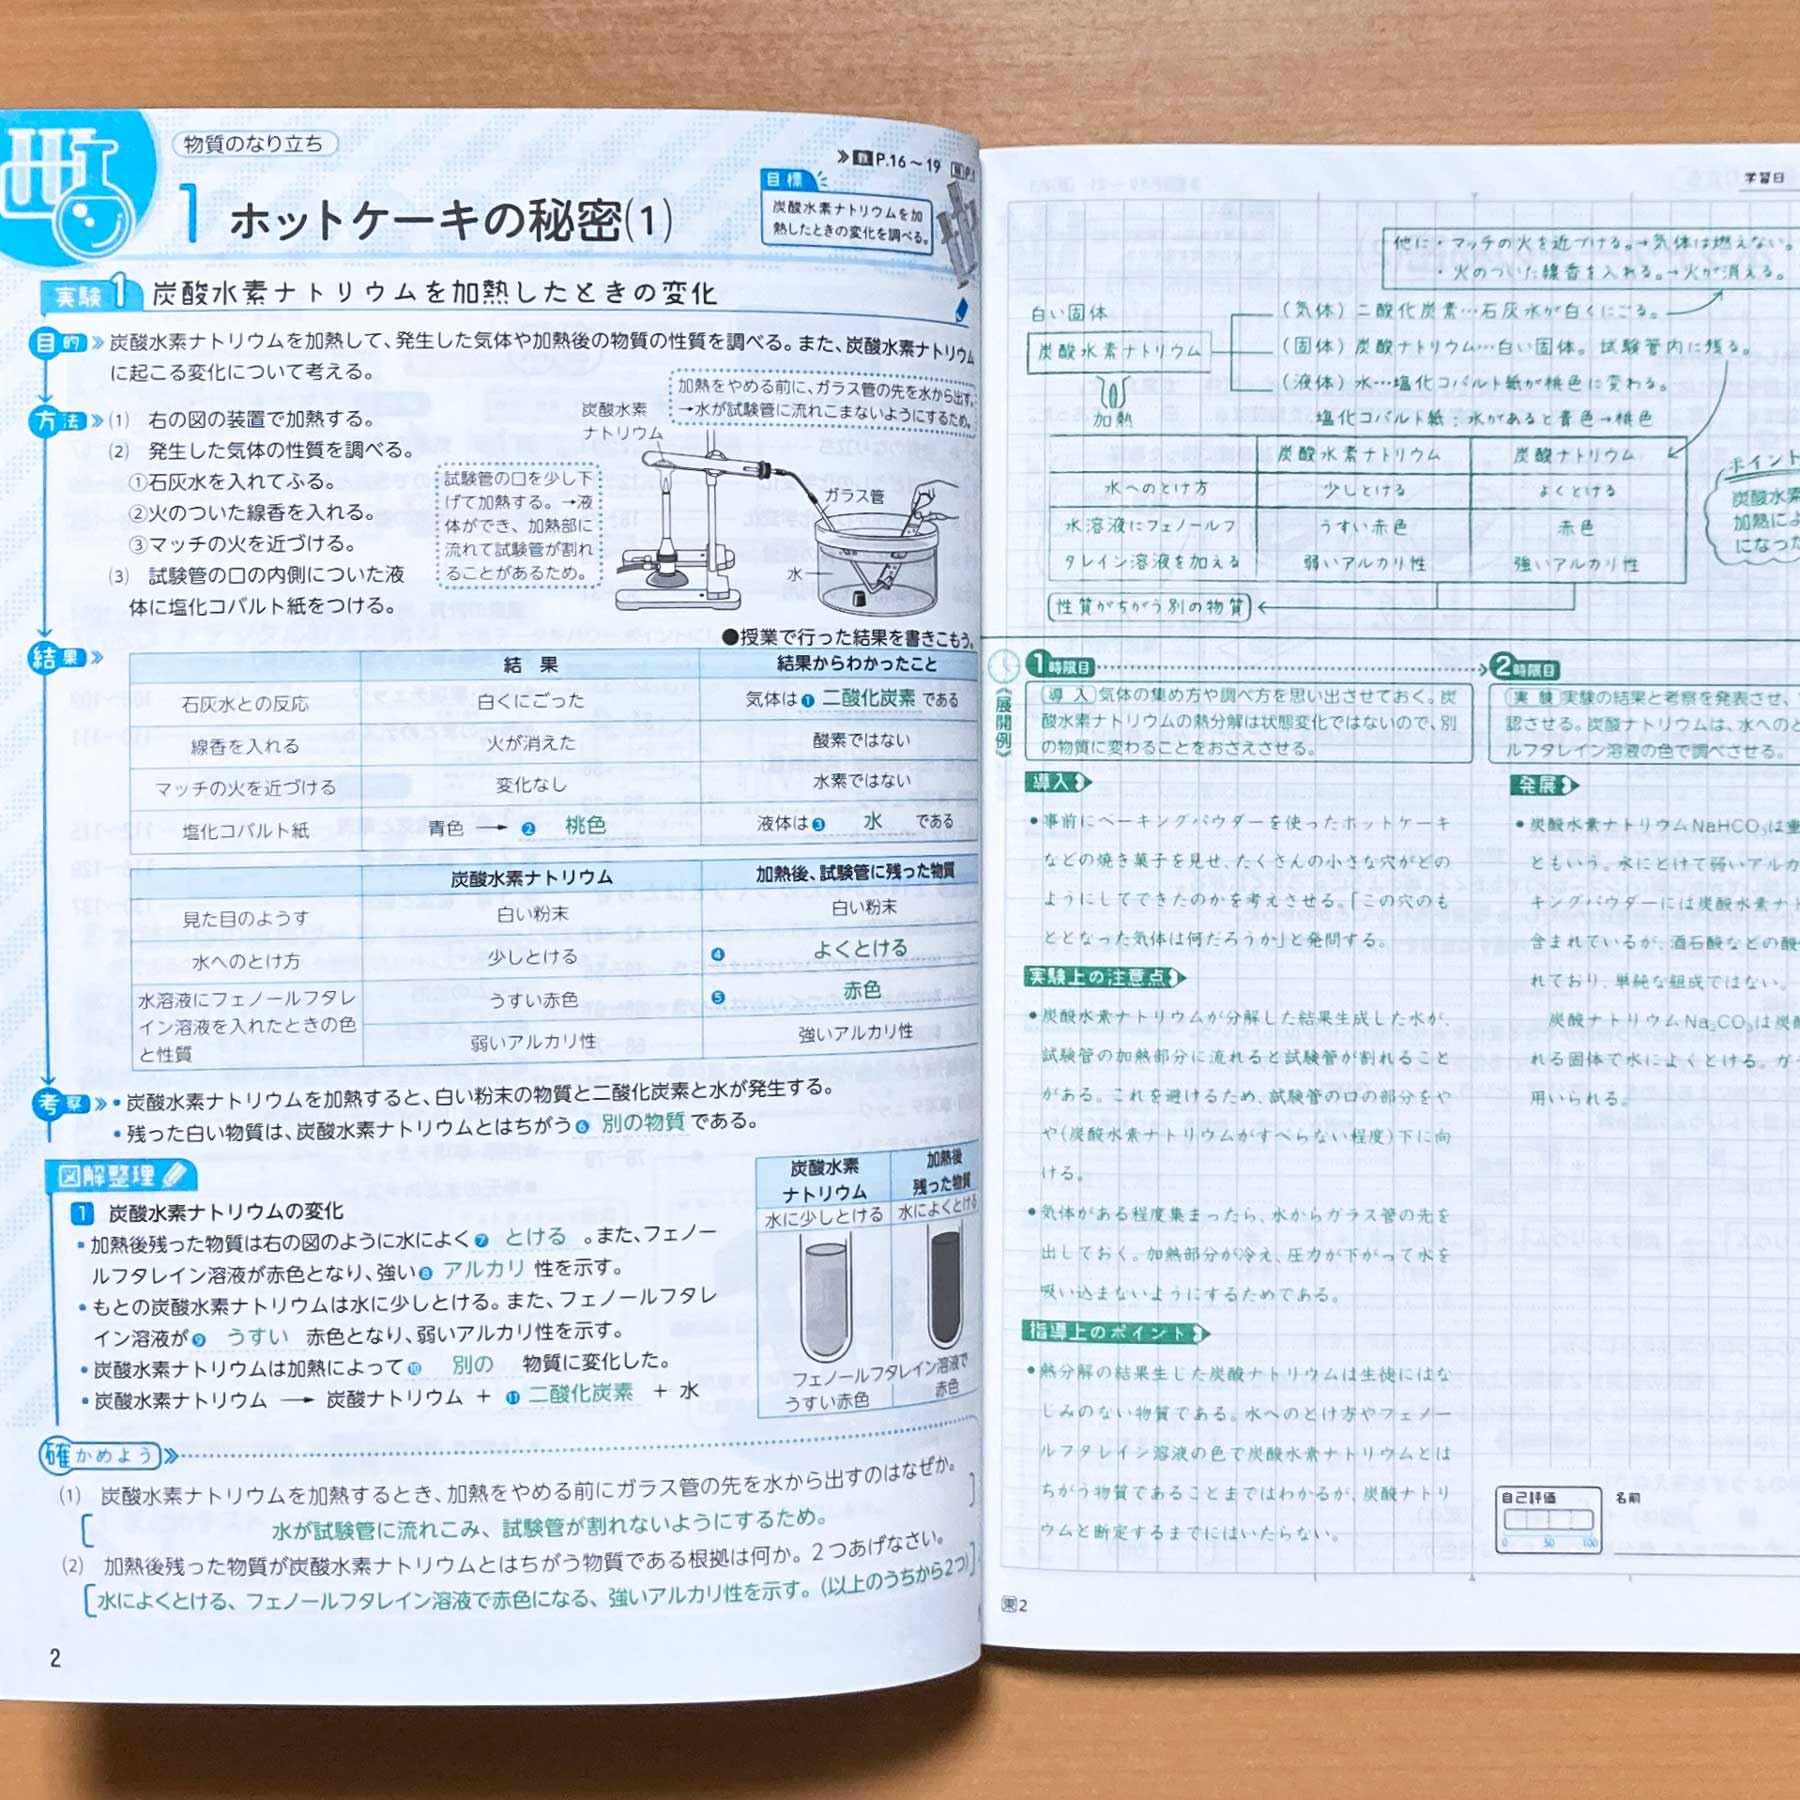 物質のなり立ち
≫教P.16～19
1 ホットケーキの秘密(1)
目標
炭酸水素ナトリウムを加
熱したときの変化を調べる。
実験1 炭酸水素ナトリウムを加熱したときの変化
目的 ≫ 炭酸水素ナトリウムを加熱して、発生した気体や加熱後の物質の性質を調べる。また、炭酸水素ナトリウム
に起こる変化について考える。
方法 ≫ (1) 右の図の装置で加熱する。
(2) 発生した気体の性質を調べる。
①石灰水を入れてふる。
②火のついた線香を入れる。
③マッチの火を近づける。
(3) 試験管の口の内側についた液
体に塩化コバルト紙をつける。
炭酸水素
ナトリウム
加熱をやめる前に、ガラス管の先を水から出す。
→水が試験管に流れこまないようにするため。
試験管の口を少し下
げて加熱する。→液
体ができ、加熱部に
流れて試験管が割れ
ることがあるため。
ガラス管
水
●授業で行った結果を書きこもう。
結果 ≫
結 果 結果からわかったこと
石灰水との反応 白くにごった 気体は❶ 二酸化炭素 である
線香を入れる 火が消えた 酸素ではない
マッチの火を近づける 変化なし 水素ではない
塩化コバルト紙 青色 → ❷ 桃色 液体は❸ 水 である
炭酸水素ナトリウム 加熱後、試験管に残った物質
見た目のようす 白い粉末 白い粉末
水へのとけ方 少しとける ❹ よくとける
水溶液にフェノールフタレ
イン溶液を入れたときの色
と性質
うすい赤色 ❺ 赤色
弱いアルカリ性 強いアルカリ性
考察 ≫ •炭酸水素ナトリウムを加熱すると、白い粉末の物質と二酸化炭素と水が発生する。
•残った白い物質は、炭酸水素ナトリウムとはちがう❻ 別の物質 である。
図解整理
1 炭酸水素ナトリウムの変化
•加熱後残った物質は右の図のように水によく❼ とける 。また、フェノー
ルフタレイン溶液が赤色となり、強い❽ アルカリ 性を示す。
•もとの炭酸水素ナトリウムは水に少しとける。また、フェノールフタレ
イン溶液が❾ うすい 赤色となり、弱いアルカリ性を示す。
•炭酸水素ナトリウムは加熱によって❿ 別の 物質に変化した。
•炭酸水素ナトリウム → 炭酸ナトリウム + ⓫ 二酸化炭素 + 水
炭酸水素
ナトリウム
加熱後
残った物質
水に少しとける 水によくとける
フェノールフタレイン溶液で
うすい赤色 赤色
確かめよう ≫
(1) 炭酸水素ナトリウムを加熱するとき、加熱をやめる前にガラス管の先を水から出すのはなぜか。
[ 水が試験管に流れこみ、試験管が割れないようにするため。 ]
(2) 加熱後残った物質が炭酸水素ナトリウムとはちがう物質である根拠は何か。2つあげなさい。
[水によくとける、フェノールフタレイン溶液で赤色になる、強いアルカリ性を示す。(以上のうちから2つ)]
2
学習日
他に・マッチの火を近づける。→気体は燃えない。
・火のついた線香を入れる。→火が消える。
白い固体
炭酸水素ナトリウム
加熱
(気体) 二酸化炭素…石灰水が白くにごる。
(固体) 炭酸ナトリウム…白い固体。試験管内に残る。
(液体) 水…塩化コバルト紙が桃色に変わる。
塩化コバルト紙：水があると青色→桃色
炭酸水素ナトリウム 炭酸ナトリウム
水へのとけ方 少しとける よくとける
水溶液にフェノールフ
タレイン溶液を加える
うすい赤色 赤色
弱いアルカリ性 強いアルカリ性
性質がちがう別の物質
ポイント
炭酸水素
加熱によ
になった
《展開例》
1時限目
導入 気体の集め方や調べ方を思い出させておく。炭
酸水素ナトリウムの熱分解は状態変化ではないので、別
の物質に変わることをおさえさせる。
2時限目
実験 実験の結果と考察を発表させ、
認させる。炭酸ナトリウムは、水へのと
ルフタレイン溶液の色で調べさせる。
導入
•事前にベーキングパウダーを使ったホットケーキ
などの焼き菓子を見せ、たくさんの小さな穴がどの
ようにしてできたのかを考えさせる。「この穴のも
ととなった気体は何だろうか」と発問する。
実験上の注意点
•炭酸水素ナトリウムが分解した結果生成した水が、
試験管の加熱部分に流れると試験管が割れること
がある。これを避けるため、試験管の口の部分をや
や(炭酸水素ナトリウムがすべらない程度)下に向
ける。
•気体がある程度集まったら、水からガラス管の先を
出しておく。加熱部分が冷え、圧力が下がって水を
吸い込まないようにするためである。
指導上のポイント
•熱分解の結果生じた炭酸ナトリウムは生徒にはな
じみのない物質である。水へのとけ方やフェノー
ルフタレイン溶液の色で炭酸水素ナトリウムとは
ちがう物質であることまではわかるが、炭酸ナトリ
ウムと断定するまでにはいたらない。
発展
•炭酸水素ナトリウムNaHCO₃は重
ともいう。水にとけて弱いアルカ
キングパウダーには炭酸水素ナト
含まれているが、酒石酸などの酸
れており、単純な組成ではない。
炭酸ナトリウムNa₂CO₃は炭酸
れる固体で水によくとける。ガラ
用いられる。
自己評価
0 50 100
名前
東2